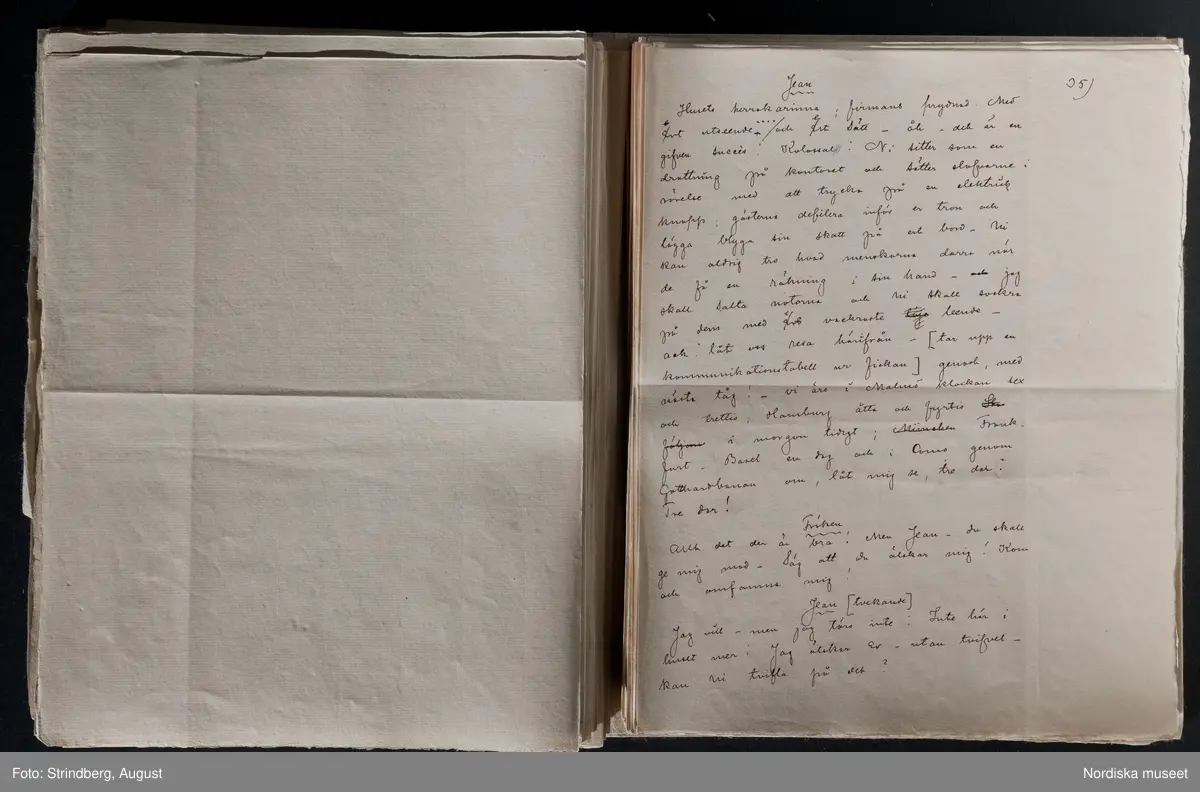 35)
Jean
Husets herrskarinna; firmans prydnad. Med
Ert utseende.. och Ert sätt – åh – det är en
gifven succès! Kolossal! Ni sitter som en
drottning på kontoret och sätter slafvarne i
rörelse med att trycka på en elektrisk
knapp; gästerna defilera inför er tron och
lägga blyga sin skatt på ert bord – Ni
kan aldrig tro hvad menskorna darra när
de få en räkning i sin hand – och jag
skall salta notorna och Ni skall sockra
på dem med Ert vackraste leende –
ack! låt oss resa härifrån – [tar upp en
kommunikationstabell ur fickan] genast, med
nästa tåg! – vi äro i Malmö klockan sex
och trettio; Hamburg åtta och fyrtio
i morgon tidigt; München Frank-
furt – Basel en dag och i Como genom
Gotthardbanan om, låt mig se, tre dar!
Tre dar!
Fröken
Allt det der är bra! Men Jean – du skall
ge mig mod – Säg att du älskar mig! Kom
och omfamna mig!
Jean [tvekande]
Jag vill – men jag törs inte! Inte här i
huset mer! Jag älskar Er – utan tvifvel –
kan Ni tvifla på det?
Foto: Strindberg, August
Nordiska museet